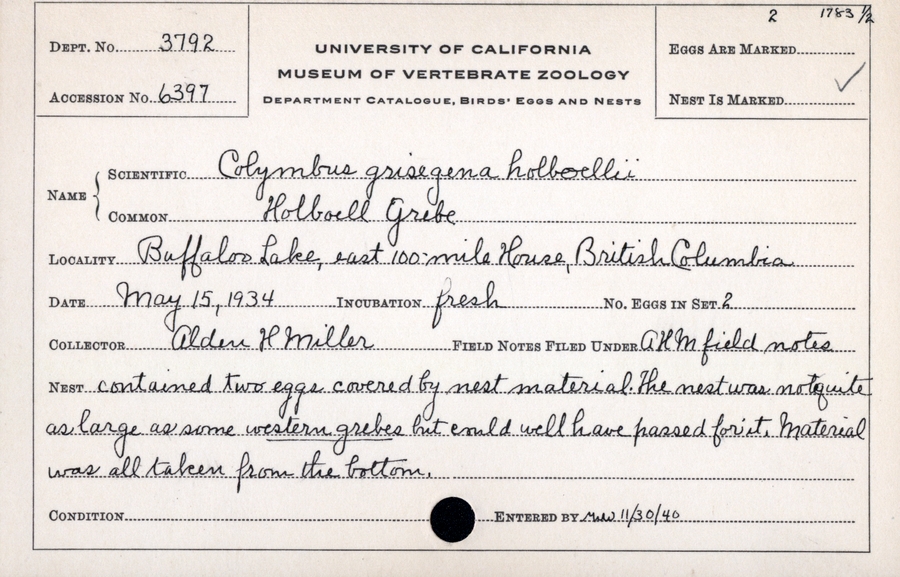 2 1783 1/2
DEPT. No. 3792
UNIVERSITY OF CALIFORNIA
EGGS ARE MARKED
MUSEUM OF VERTEBRATE ZOOLOGY
ACCESSION No. 6397
DEPARTMENT CATALOGUE, BIRDS' EGGS AND NESTS
NEST IS MARKED ✓
NAME { SCIENTIFIC Colymbus grisegena holboellii
COMMON Holboell Grebe
LOCALITY Buffaloo Lake, east 100 mile House, British Columbia
DATE May 15, 1934 INCUBATION fresh No. EGGS IN SET 2
COLLECTOR Alden H Miller FIELD NOTES FILED UNDER AHM field notes
NEST contained two eggs covered by nest material. The nest was not quite
as large as some western grebes but could well have passed for it. Material
was all taken from the bottom.
CONDITION ENTERED BY 11/30/40